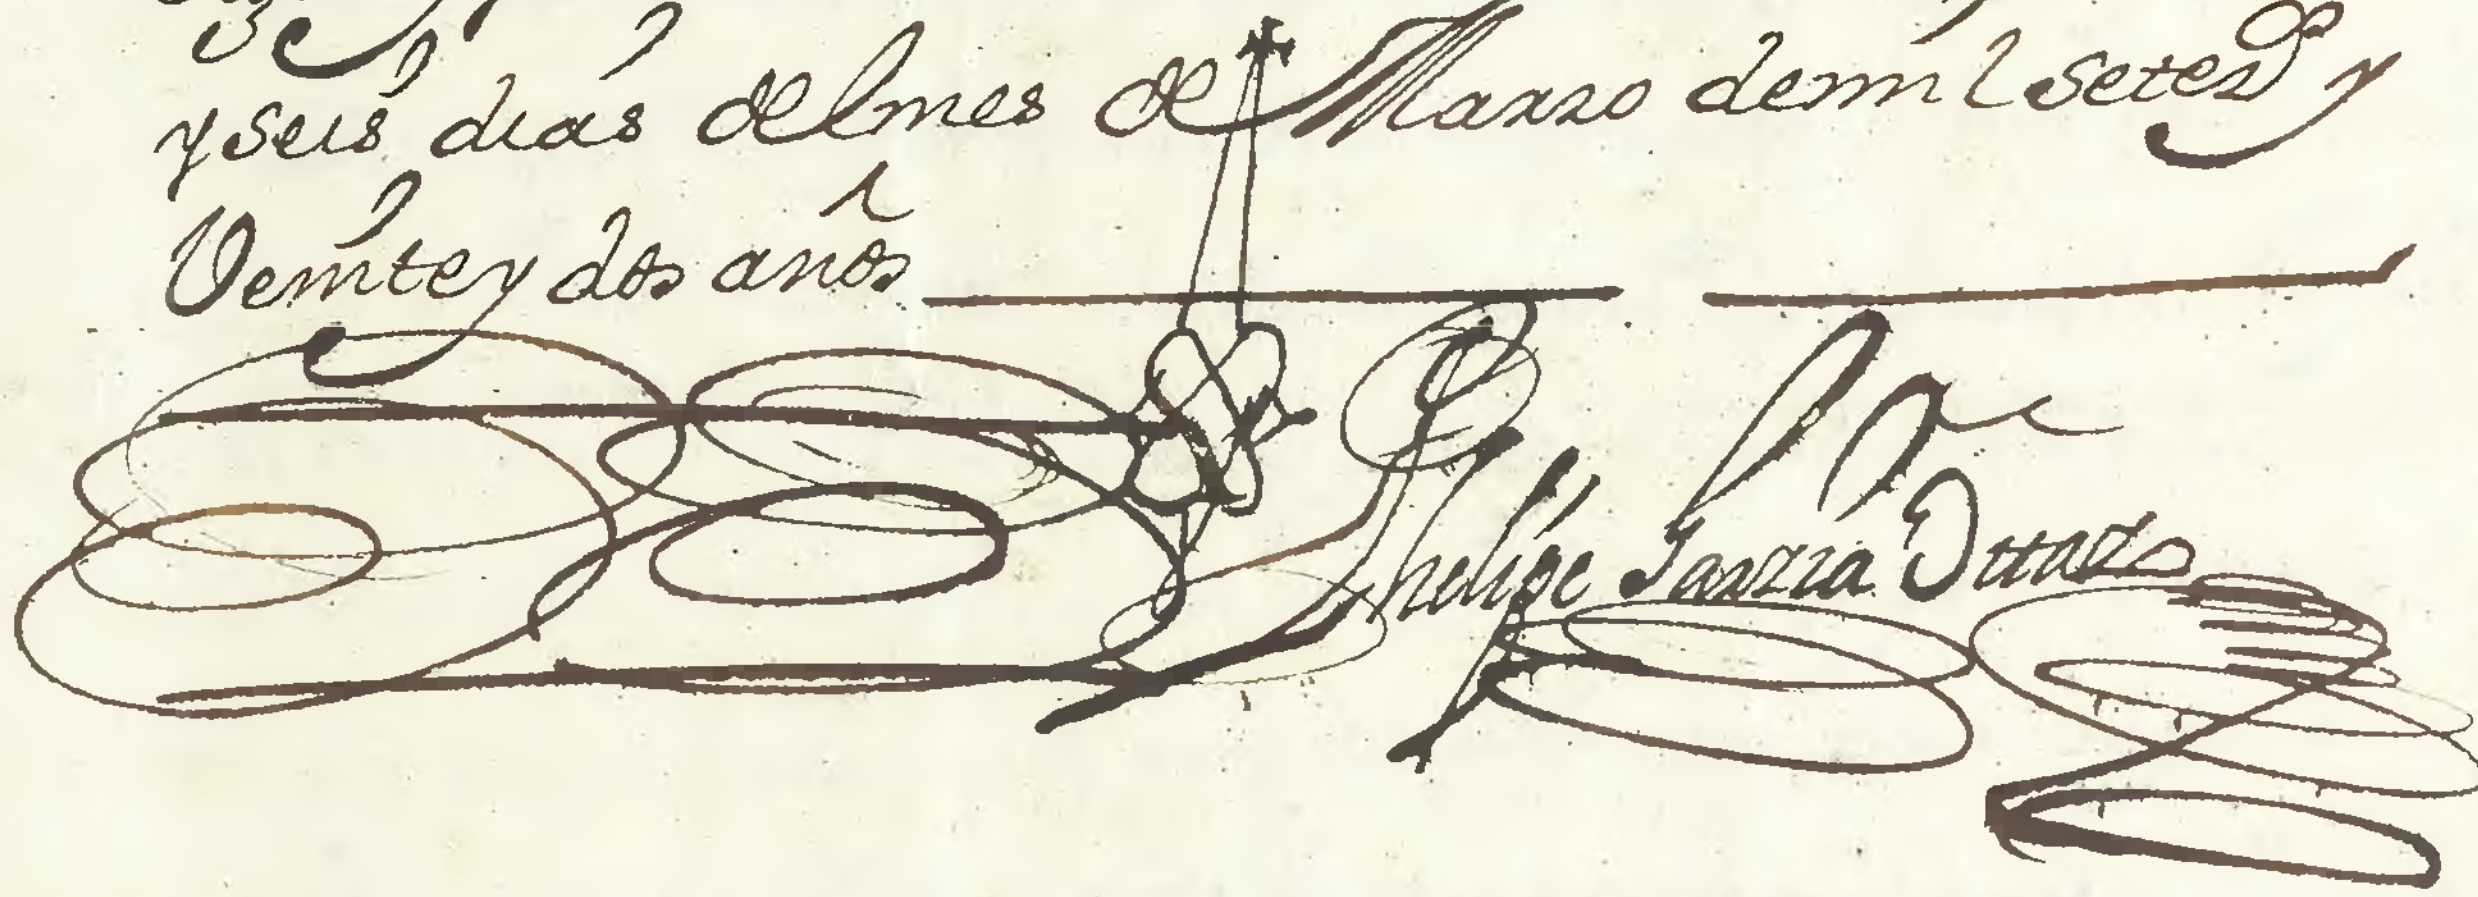 y seis dias del mes de Marzo de mil setezos y
Veinte y dos años
Phelipe Garzia